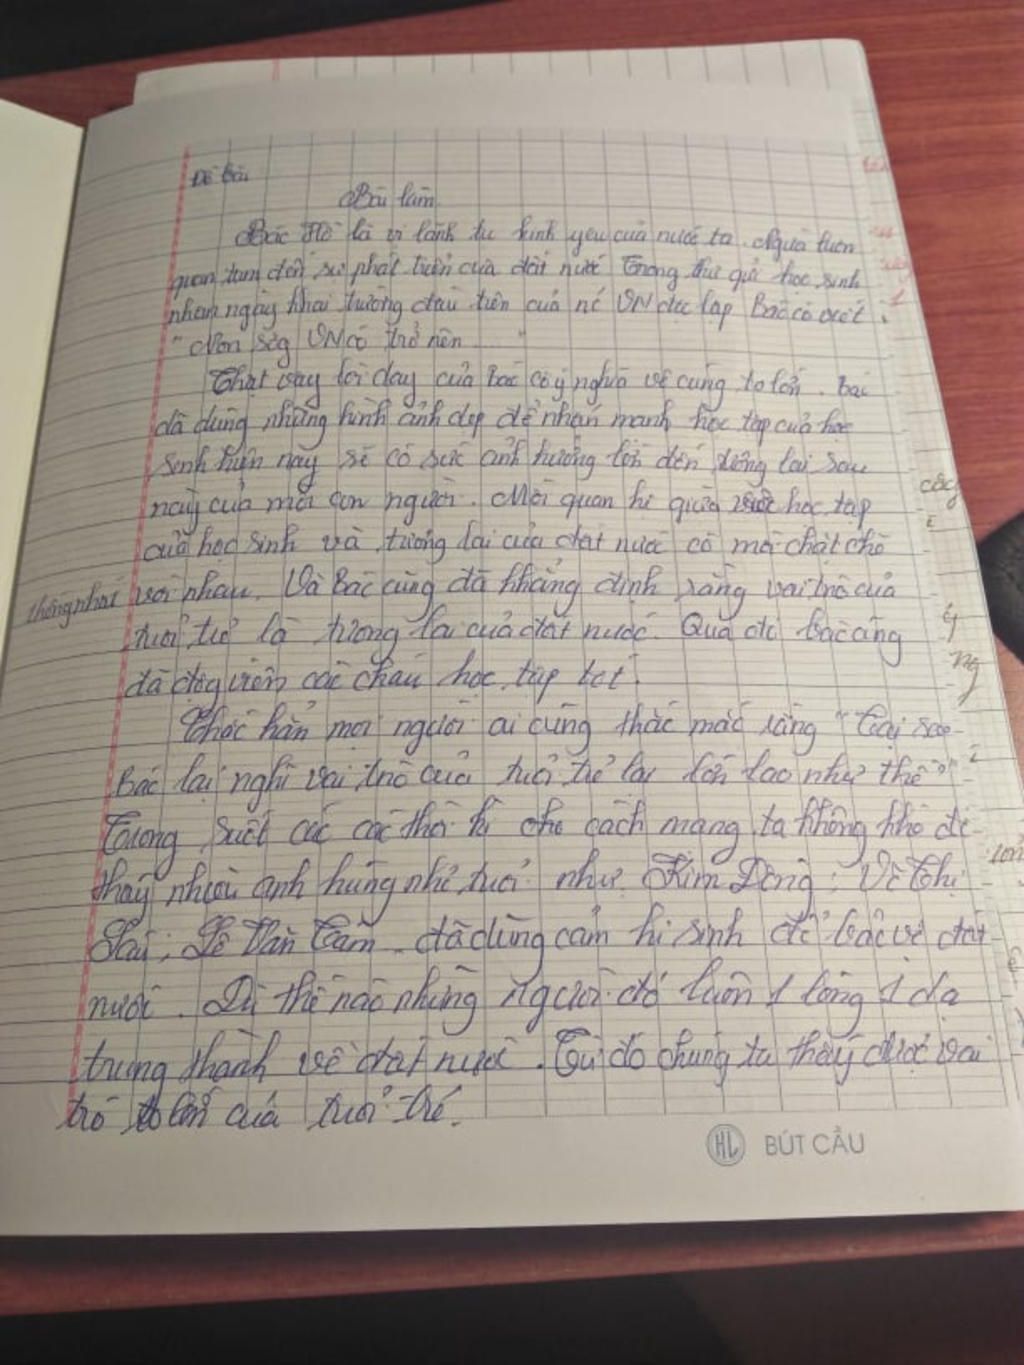 Đề bài
Bài làm
Bác Hồ là vị lãnh tụ kính yêu của nước ta. Người luôn
quan tâm đến sự phát triển của đất nước Trong thư gửi học sinh
nhân ngày khai trường đầu tiên của nc VN độc lập Bác có viết :
"Non sông VN có trở nên ..... "
Thật vậy lời dạy của Bác có ý nghĩa vô cùng to lớn. Bác
đã dùng những hình ảnh đẹp để nhấn mạnh học tập của học
sinh hiện nay sẽ có sức ảnh hưởng lớn đến tương lai sau
này của mỗi con người. Mối quan hệ giữa việc học tập
của học sinh và tương lai của đất nước có mối chặt chẽ
thống nhất với nhau. Và Bác cũng đã khẳng định rằng vai trò của
tuổi trẻ là tương lai của đất nước. Qua đó Bác cũng
đã động viên các cháu học tập tốt.
Chắc hẳn mọi người ai cũng thắc mắc rằng "Tại sao
Bác lại nghĩ vai trò của tuổi trẻ lại lớn lao như thế?"
Trong suốt các các thời kì cho cách mạng ta không khó để
thấy nhiều anh hùng nhỏ tuổi như Kim Đồng; Võ Thị
Sáu; Lê Văn Tám đã dũng cảm hi sinh để bảo vệ đất
nước. Dù thế nào những người đó luôn 1 lòng 1 dạ
trung thành về đất nước. Từ đó chúng ta thấy được vai
trò to lớn của tuổi trẻ.
HL BÚT CẦU